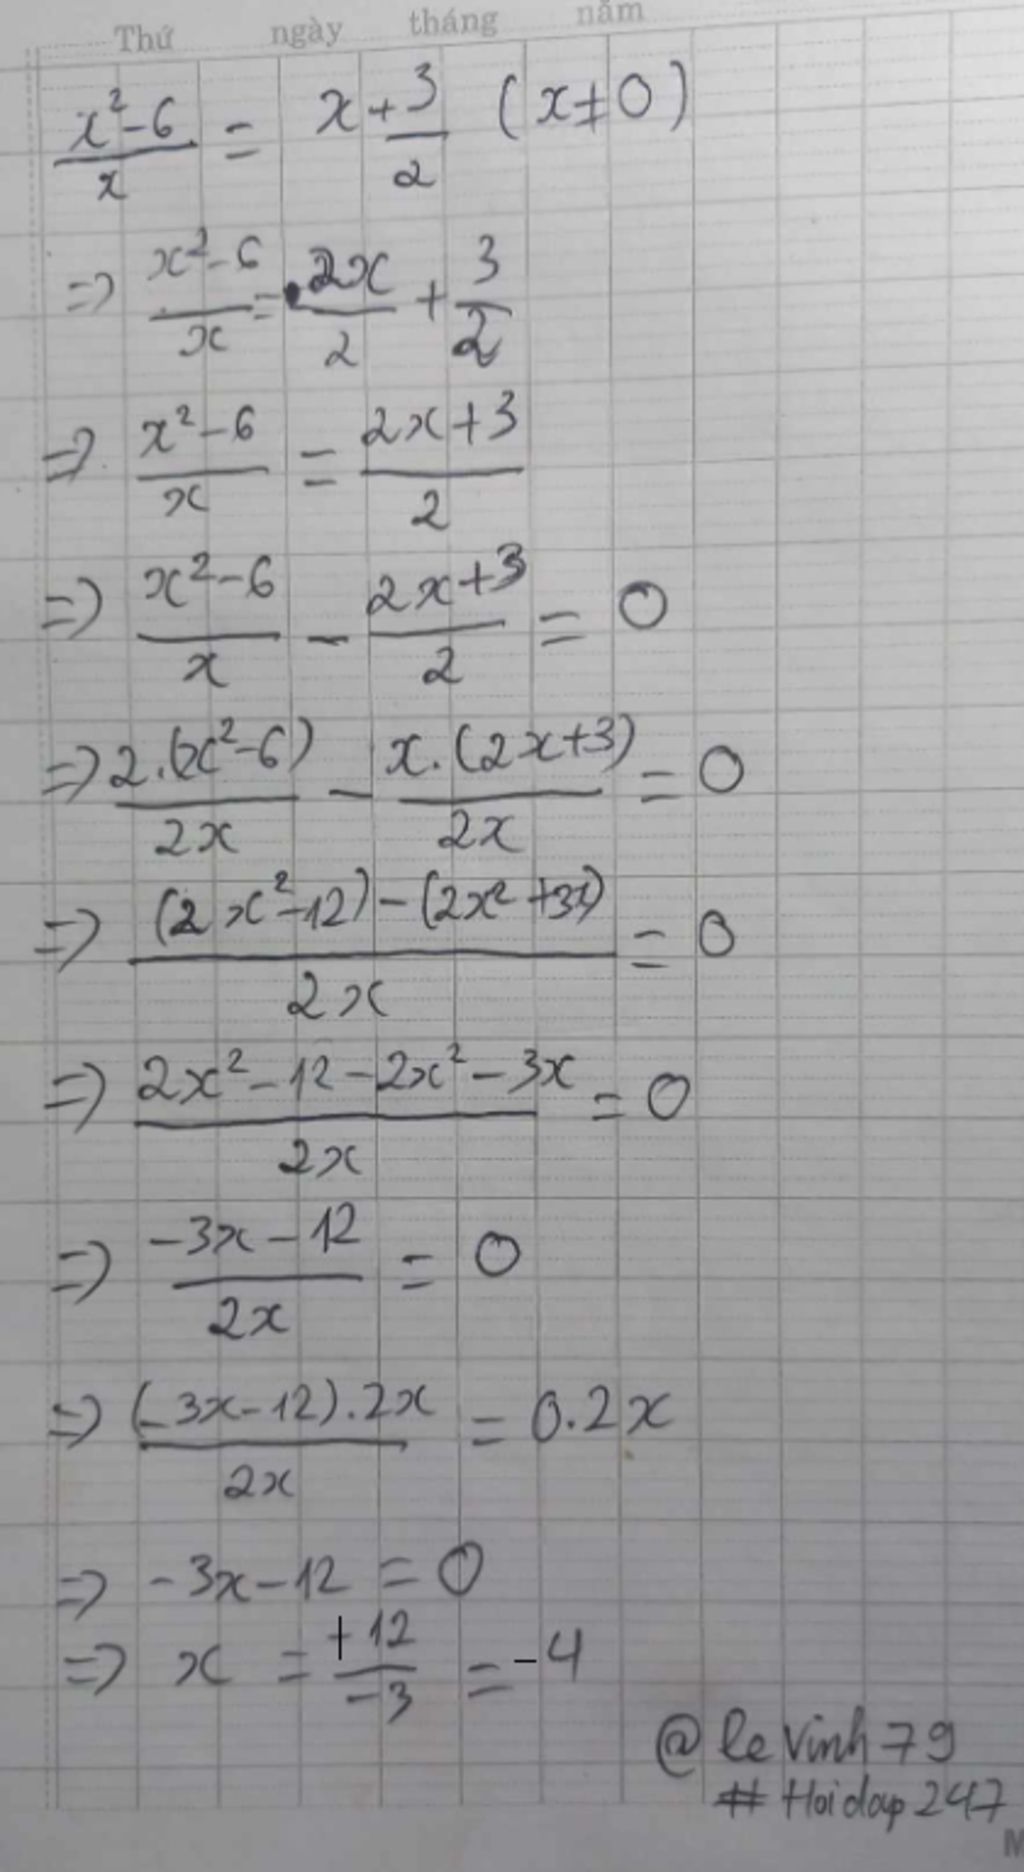 Thứ ngày tháng năm
x²-6/x = x + 3/2 (x≠0)
=> x²-6/x = 2x/2 + 3/2
=> x²-6/x = 2x+3/2
=> x²-6/x - 2x+3/2 = 0
=> 2.(x²-6)/2x - x.(2x+3)/2x = 0
=> (2x²-12)-(2x²+3x)/2x = 0
=> 2x²-12-2x²-3x/2x = 0
=> -3x-12/2x = 0
=> (-3x-12).2x/2x = 0.2x
=> -3x-12 = 0
=> x = +12/-3 = -4
@ le Vinh 79
# Hoidap 247
M